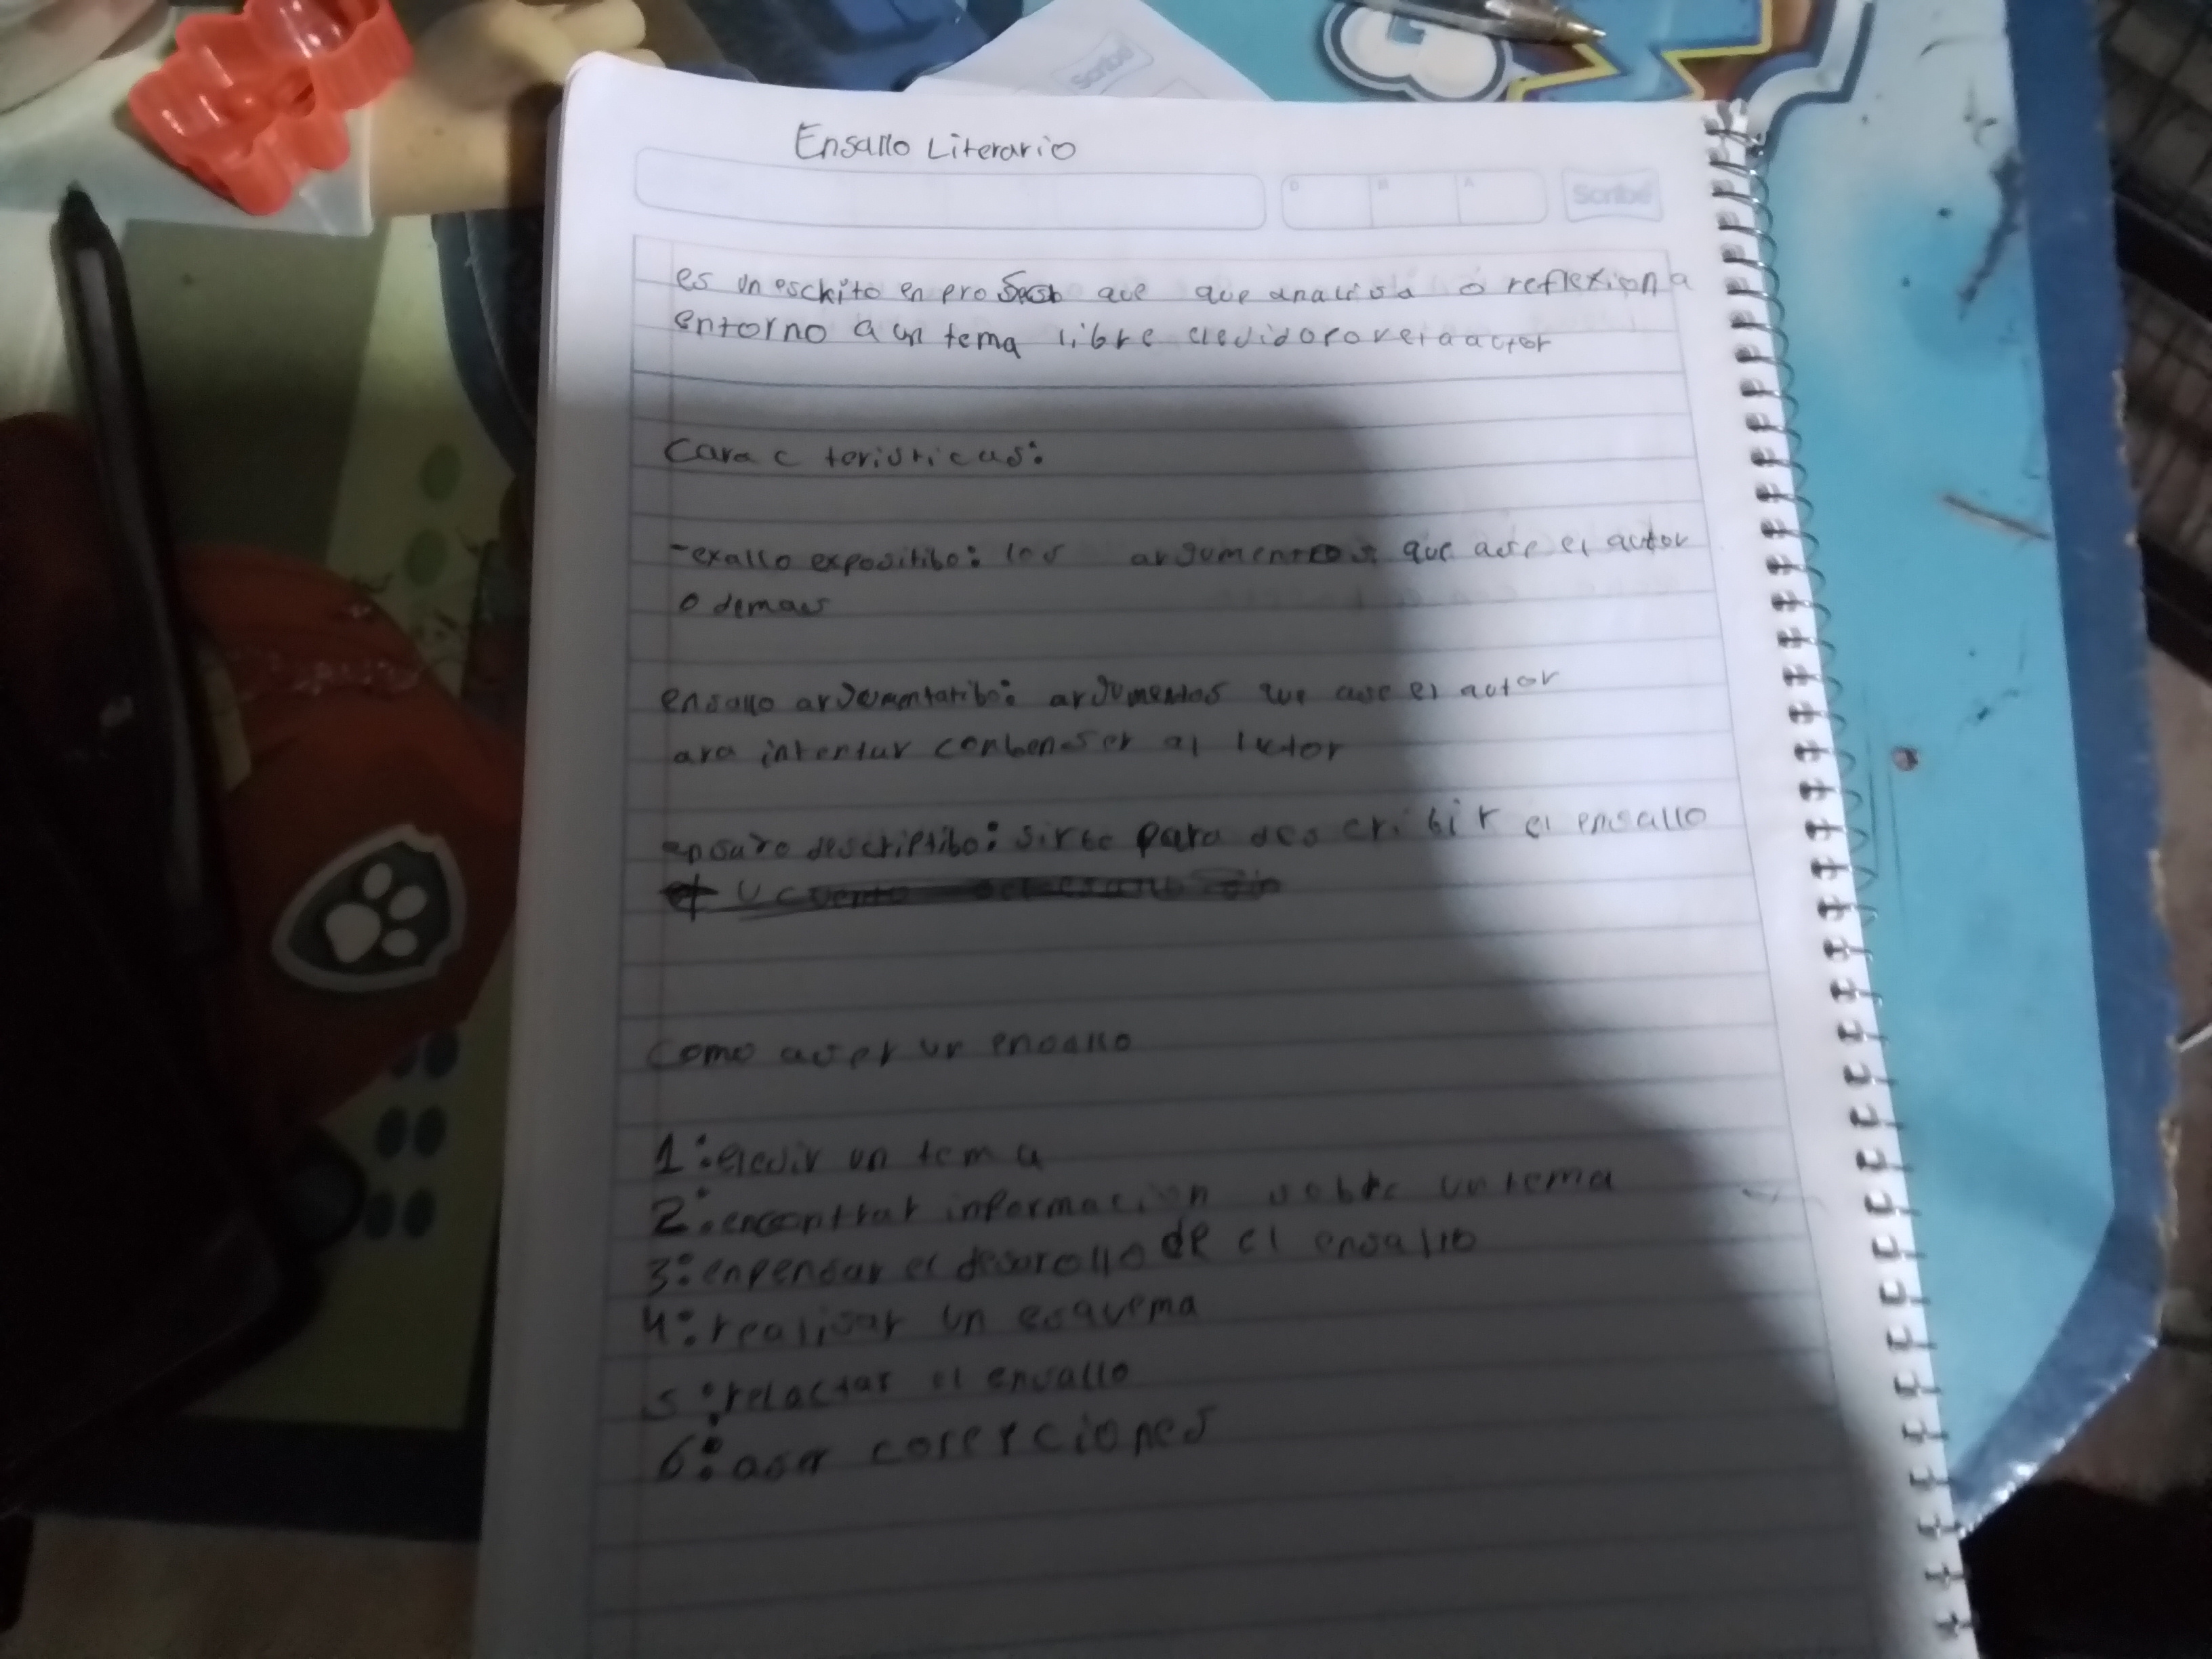 Scribe
Ensallo Literario
D M A
Scribe
es un eschito en pro que que analisa o reflexiona
entorno a un tema libre
Carac toristicas:
-exallo expositibo: los argumentos que ase el autor
o demas
ensallo arJumentatibo: arJumentos que ase el autor
ara intentar conbenser al lector
descriptibo: sirbe para des cribir el ensallo
Como aser un ensallo
1: un tema
2: encontrar informacion sobre un tema
3: enpensar el desorollo de el ensallo
4: realisar un esquema
5: relactar el ensallo
6: aser corerciones